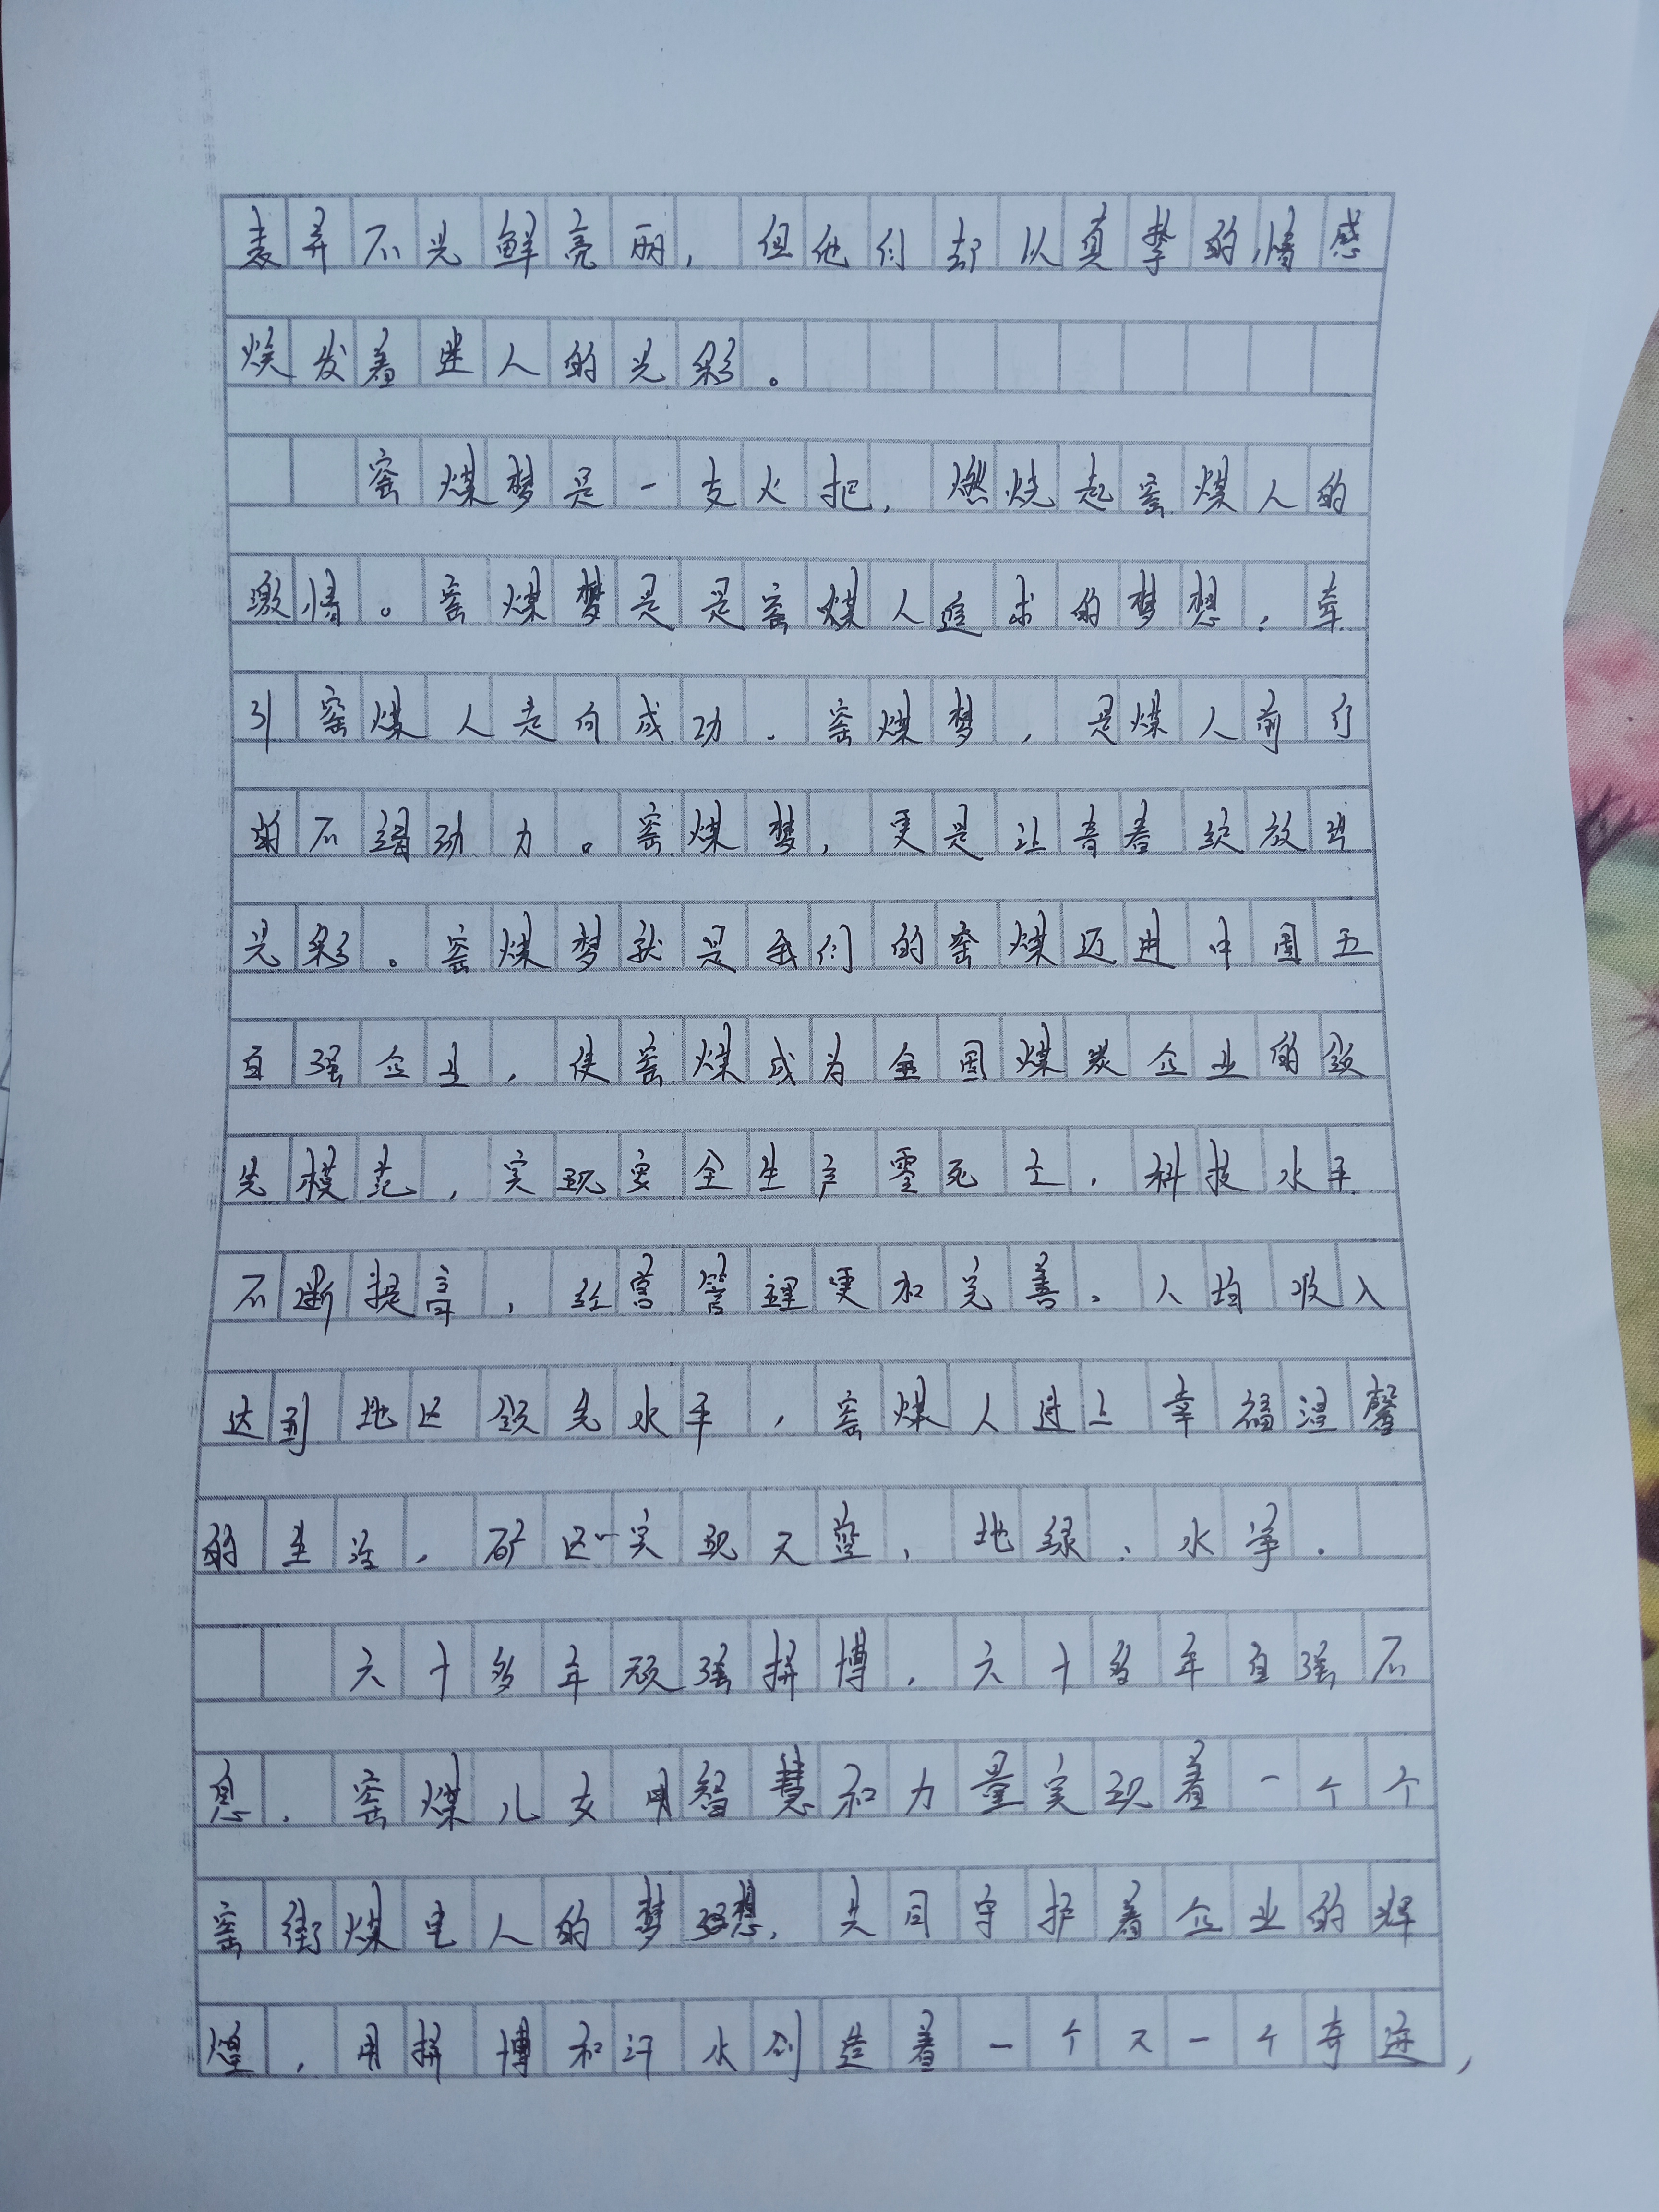 表并不光鲜亮丽，但他们却以真挚的情感
焕发着迷人的光彩。
窑煤梦是一支火把，燃烧起窑煤人的
激情。窑煤梦是是窑煤人追求的梦想，牵
引窑煤人走向成功。窑煤梦，是煤人前行
的不竭动力。窑煤梦，更是让青春绽放出
光彩。窑煤梦就是我们的窑煤迈进中国五
百强企业，使窑煤成为全国煤炭企业的领
先模范，实现安全生产零死亡，科技水平
不断提高，经营管理更和完善。人均收入
达到地区领先水平，窑煤人过上幸福温馨
的生活，矿区实现天蓝、地绿、水净。
六十多年顽强拼博，六十多年自强不
息，窑煤儿女用智慧和力量实现着一个个
窑街煤电人的梦想，共同守护着企业的辉
煌，用拼博和汗水创造着一个又一个奇迹，